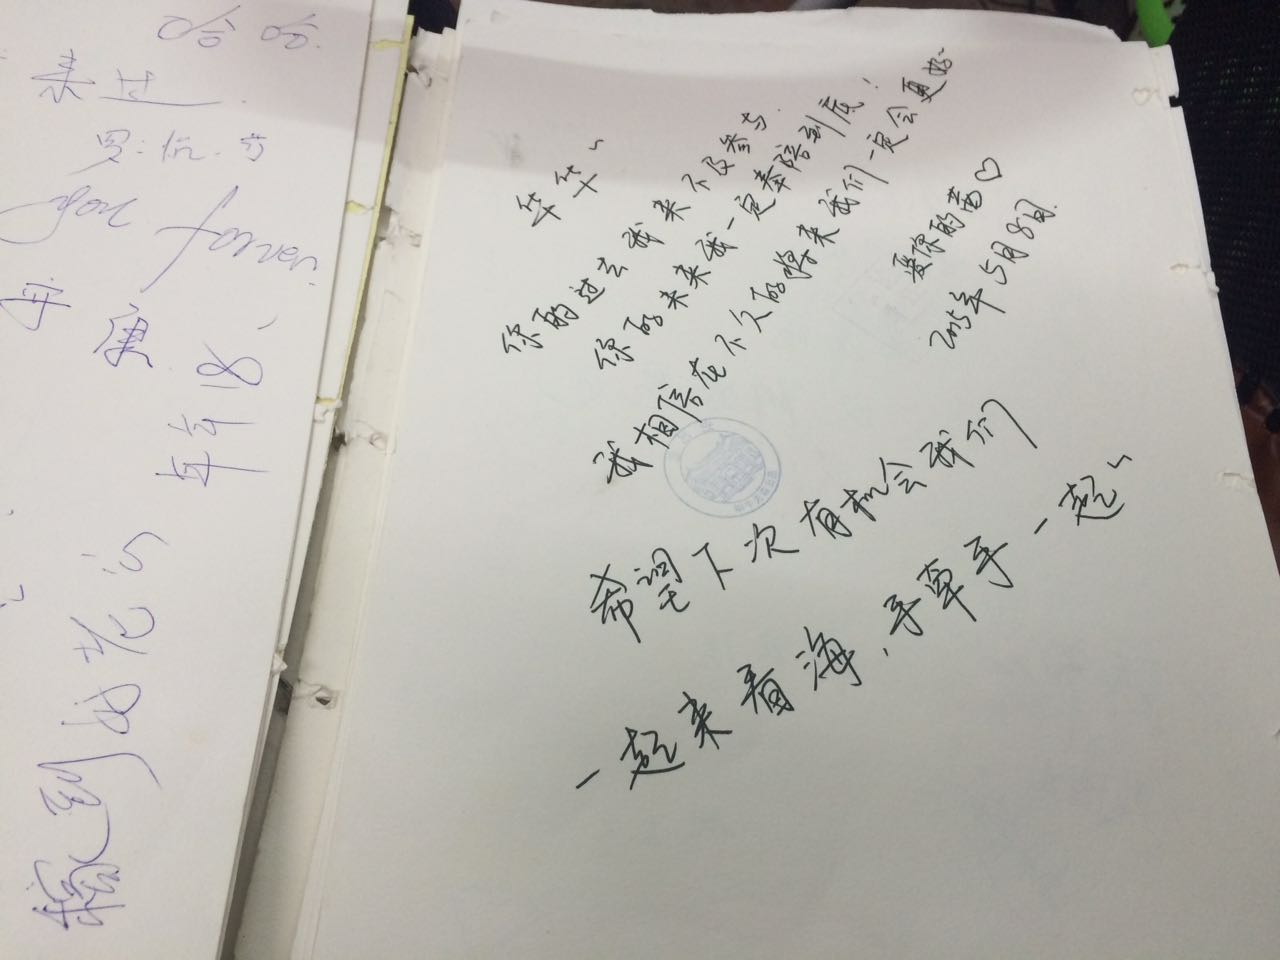 哈哈
来过
you forever
年年18、
华华~
你的过去我来不及参与.
你的未来我一定奉陪到底!
我相信在不久的将来我们一定会更好~
爱你的苗♡
2015年5月8日.
希望下次有机会我们
一起来看海,手牵手一起~